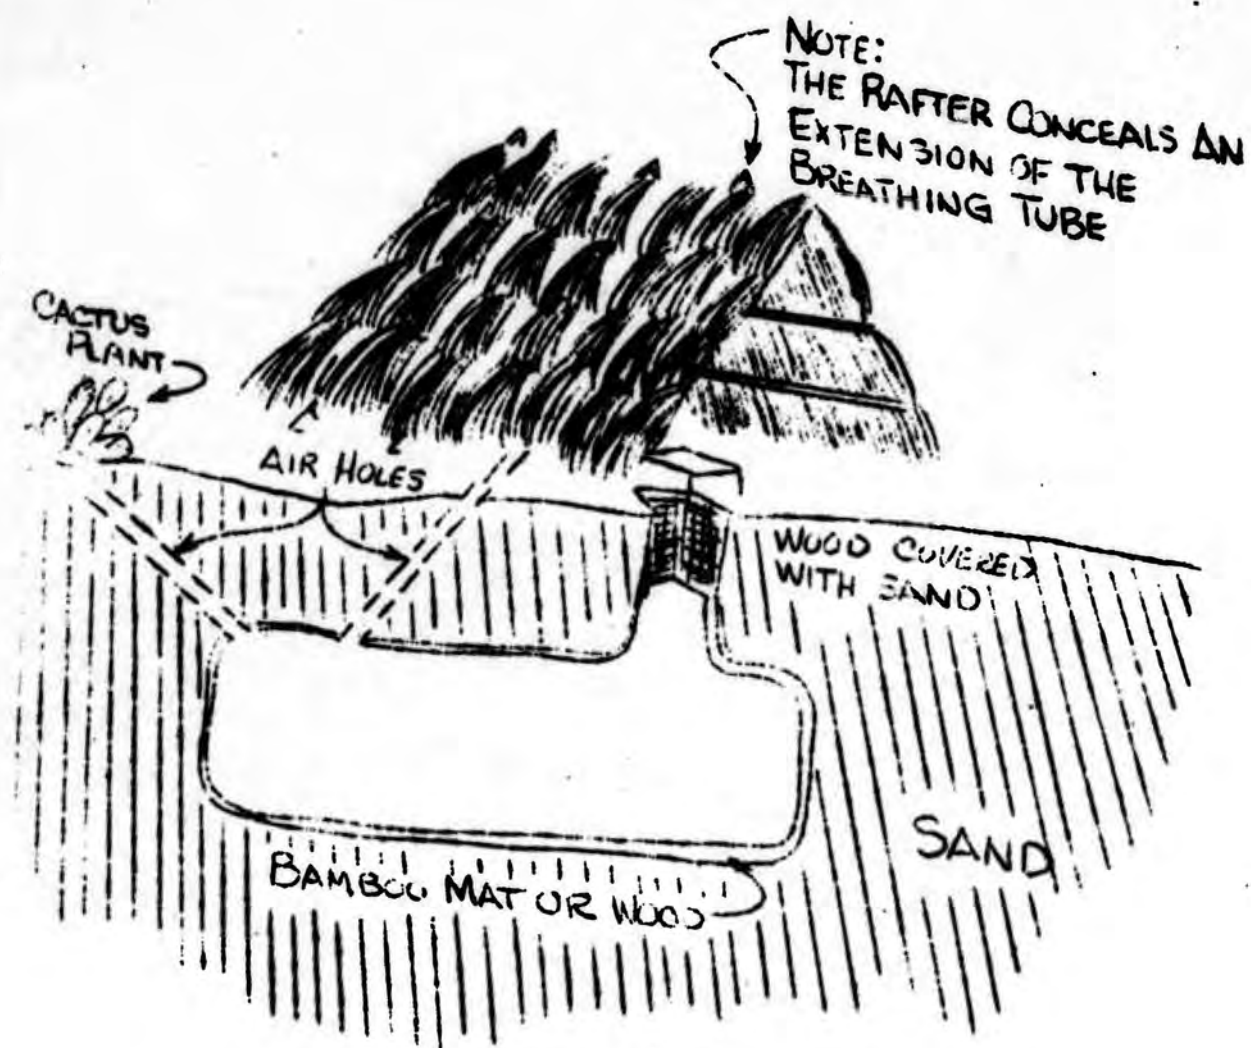 NOTE:
THE RAFTER CONCEALS AN
EXTENSION OF THE
BREATHING TUBE
CACTUS
PLANT
AIR HOLES
WOOD COVERED
WITH SAND
SAND
BAMBOO MAT OR WOOD